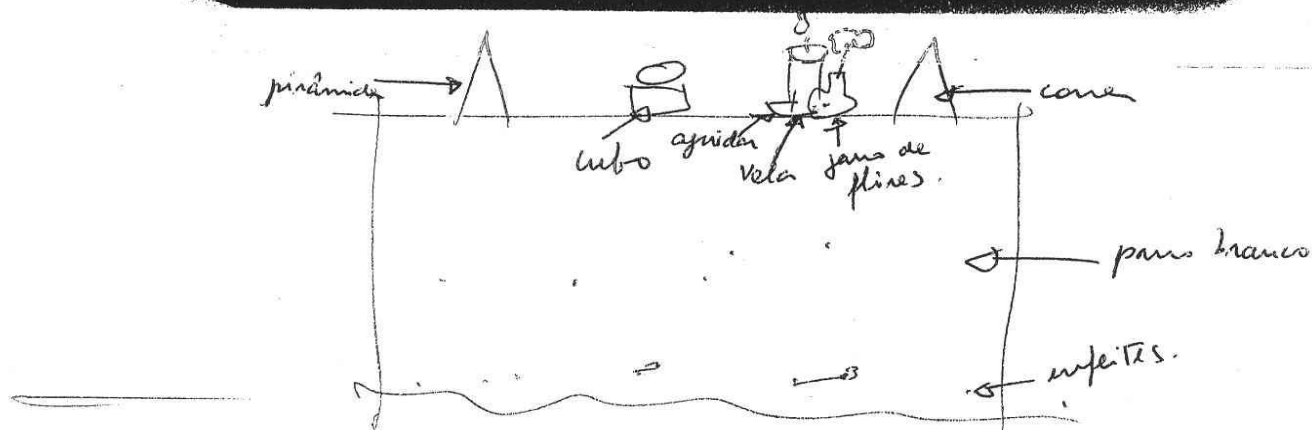 pirâmide
cubo
aguidar
vela
jarro de
flores.
cone
pano branco
enfeites.